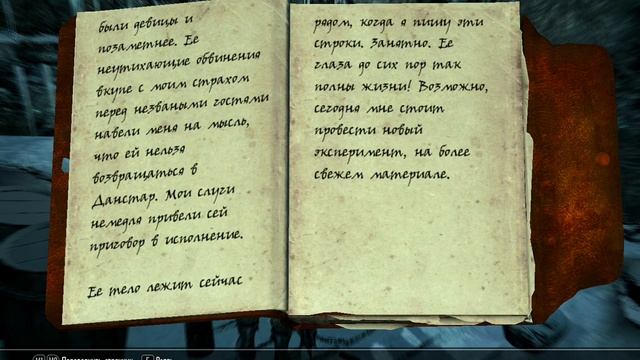 были девицы и
позаметнее. Ее
неутихающие обвинения
вкупе с моим страхом
перед незваными гостями
навели меня на мысль,
что ей нельзя
возвращаться в
Данстар. Мои слуги
немедля привели сей
приговор в исполнение.
Ее тело лежит сейчас
рядом, когда я пишу эти
строки. Занятно. Ее
глаза до сих пор так
полны жизни! Возможно,
сегодня мне стоит
провести новый
эксперимент, на более
свежем материале.